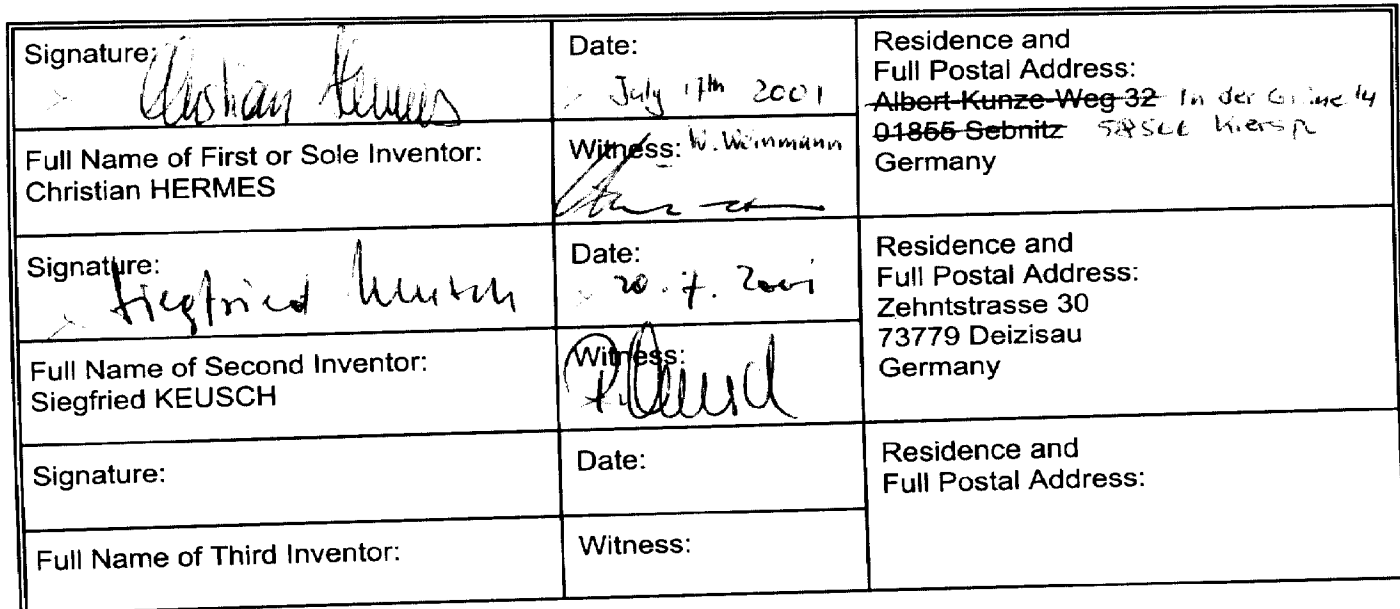 Signature:
Christian Hermes
Date:
July 17th 2001
Residence and
Full Postal Address:
Albert-Kunze-Weg 32 In der
01855 Sebnitz
Germany
Full Name of First or Sole Inventor:
Christian HERMES
Witness: W. Weinmann
Signature:
Siegfried Keusch
Date:
20. 7. 2001
Residence and
Full Postal Address:
Zehntstrasse 30
73779 Deizisau
Germany
Full Name of Second Inventor:
Siegfried KEUSCH
Witness:
Signature:
Date:
Residence and
Full Postal Address:
Full Name of Third Inventor:
Witness: